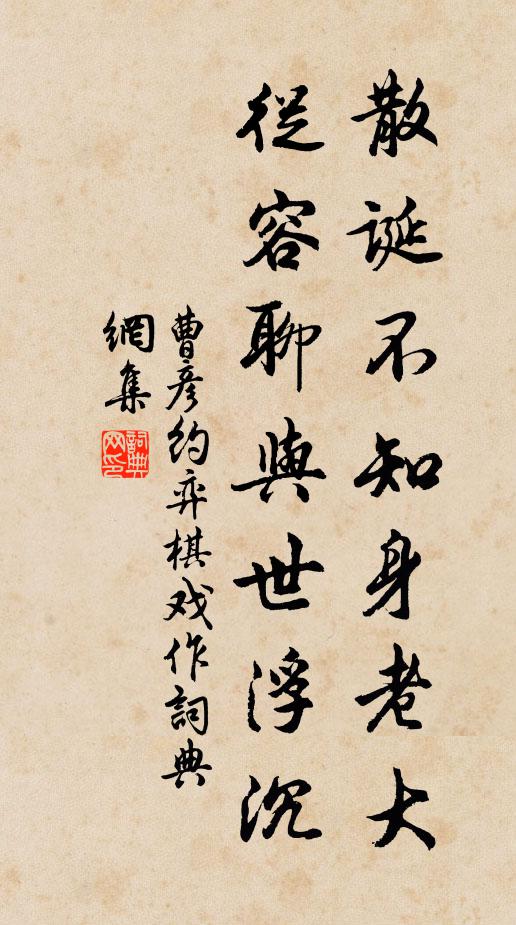 散誕不知身老大
從容聊與世浮沉
曹彥約弈棋戏作詞典
網集
詞典
网印